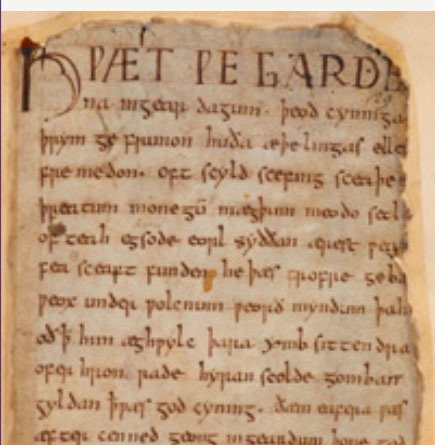 HǷÆT ǷE GARDE
na ingear dagum. þeod cyninga
þrym ge frunon huða æþelingas elle
fremedon. oft scyld scefing sceaþe
þreatum monegū mægþum meodo setl
of teah egsode eorl syððan ærest ƿear
fea sceaft funden he þæs frofre geba
ƿeox under ƿolcnum ƿeorð myndum þah
oð þ him æghƿylc þara ymb sittendra
ofer hron rade hyran scolde gomban
gyldan þæt ƿæs god cyning. ðæm eafera ƿæs
æfter cenned geong in geardum þone god